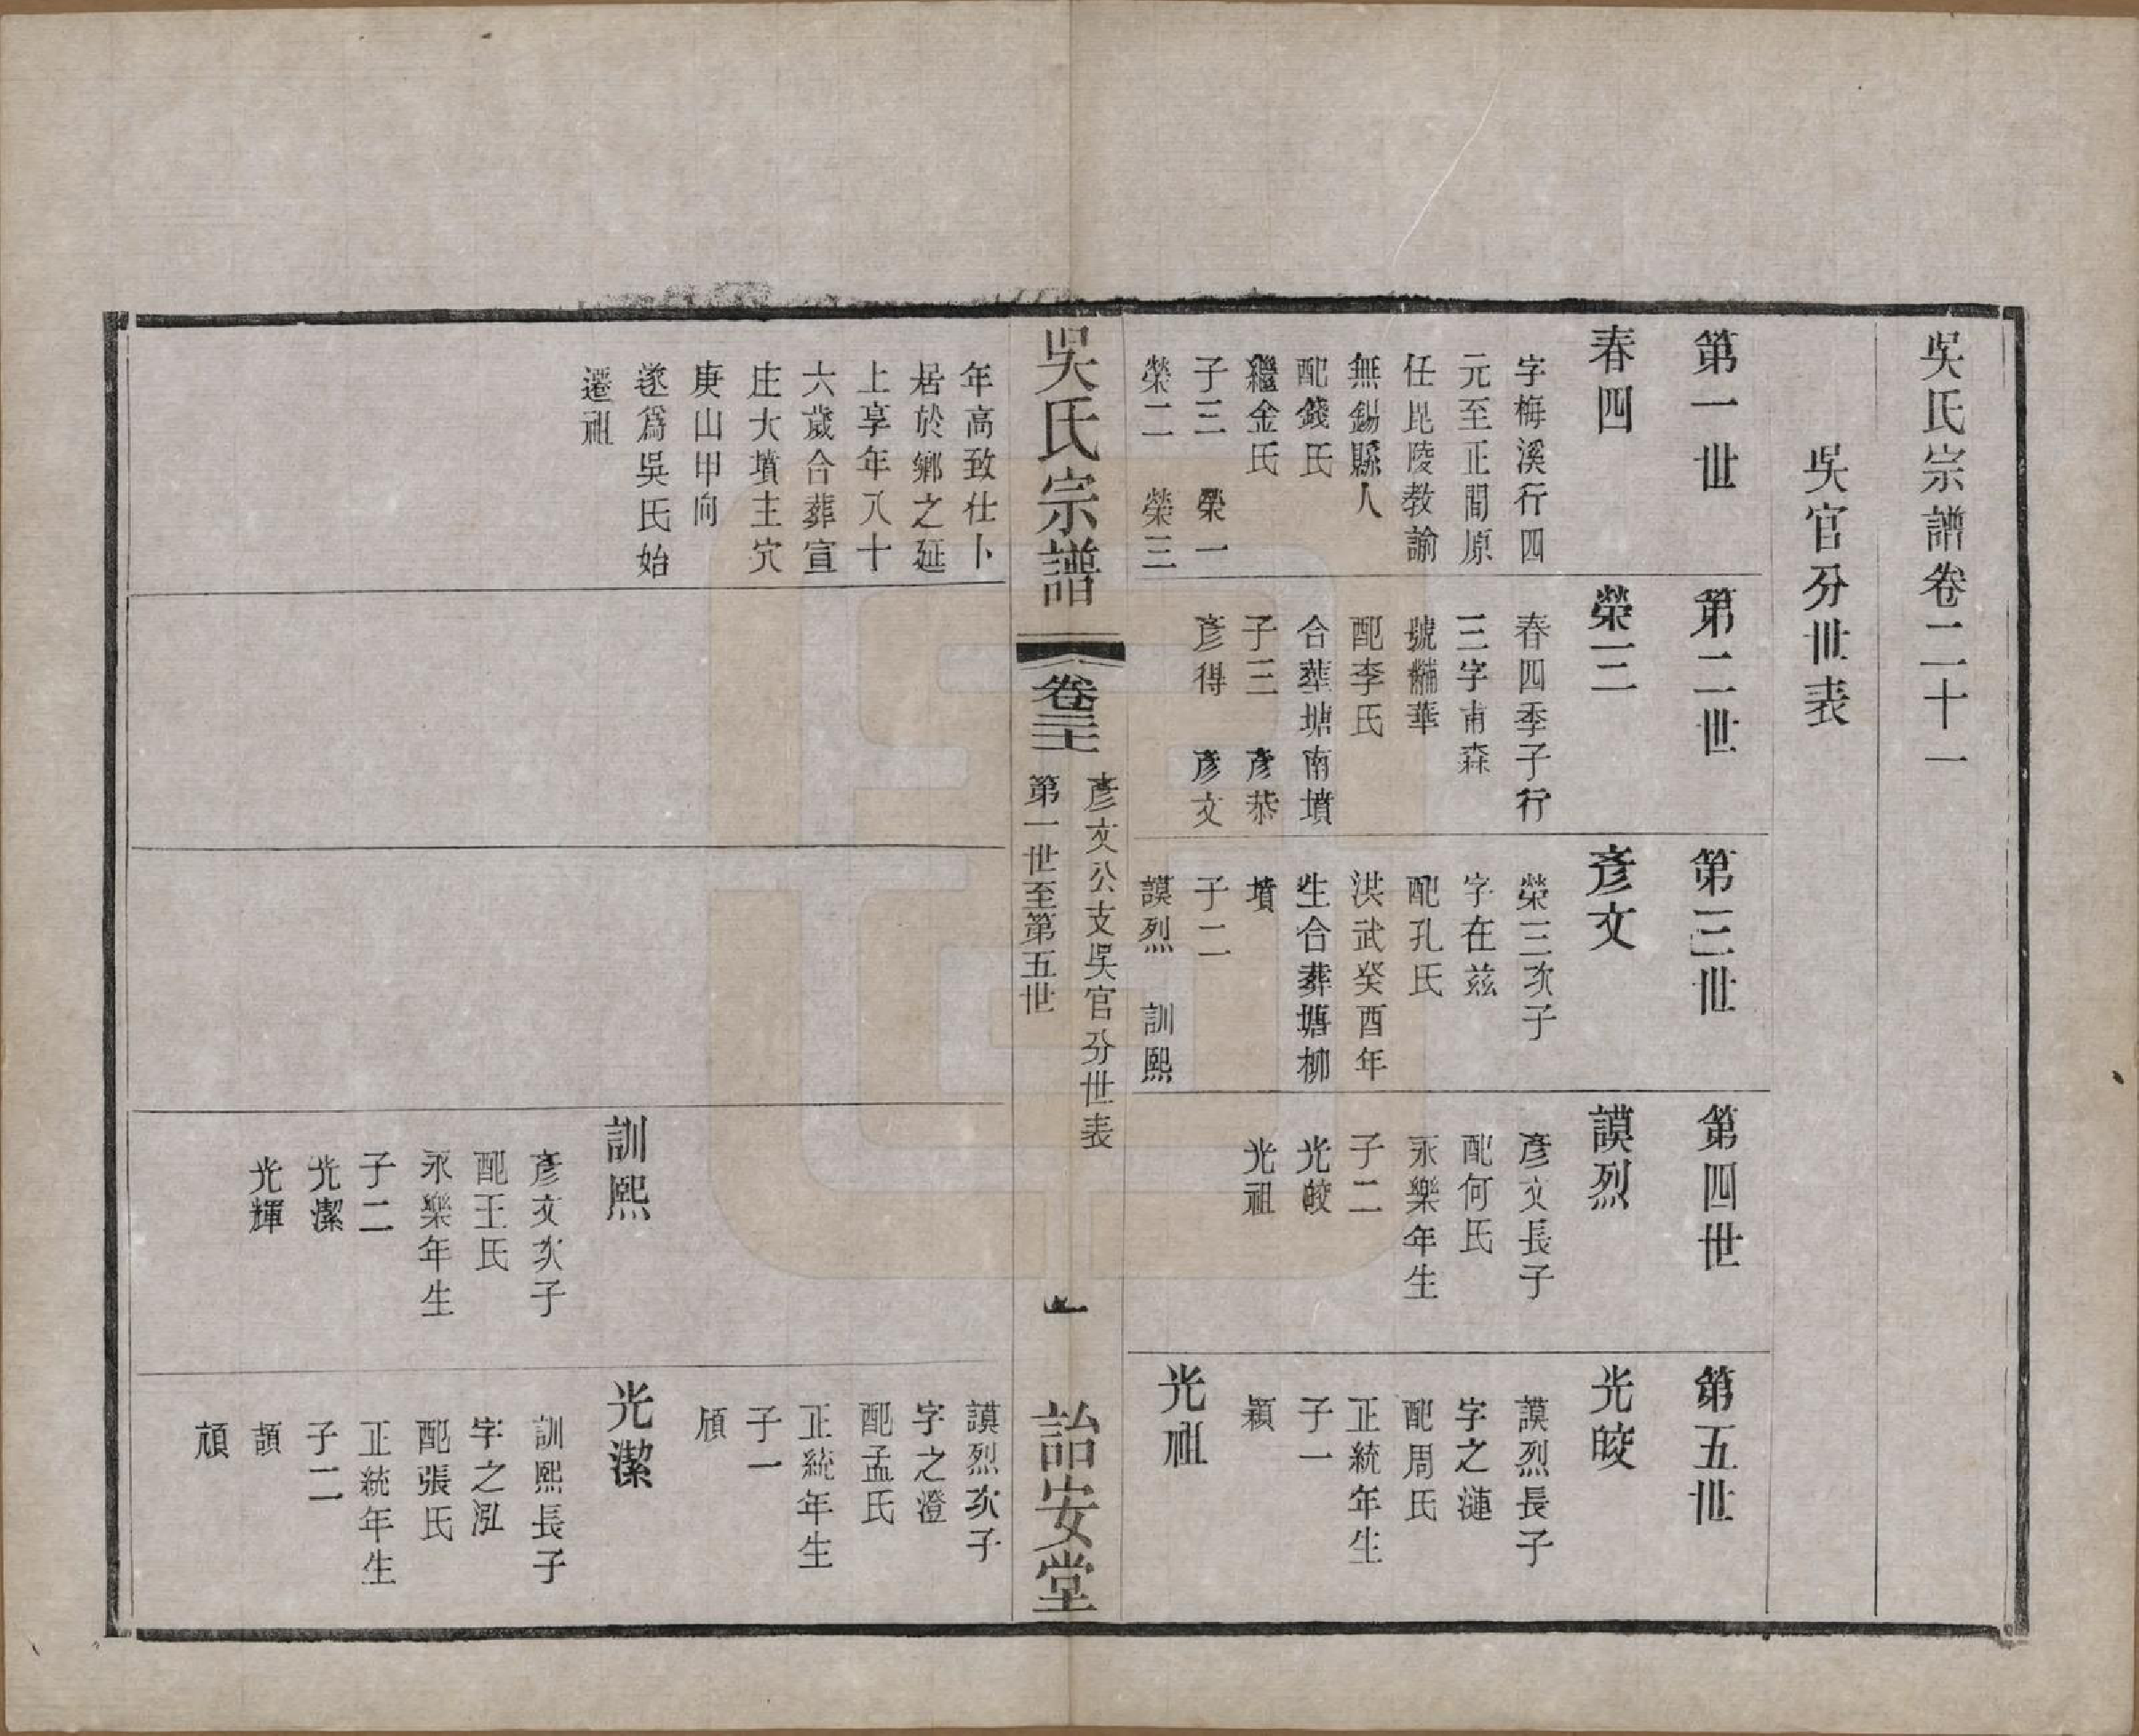 吳氏宗譜卷二十一
吳官分世表
第一世
春四
字梅溪行四
元至正間原
任毘陵教諭
無錫縣人
配錢氏
繼金氏
子三 榮一
榮二 榮三
第二世
榮三
春四季子行
三字甫森
號黼華
配李氏
合葬塘南墳
子三 彥恭
彥得 彥文
第三世
彥文
榮三次子
字在茲
配孔氏
洪武癸酉年
生合葬塘柳
墳
子二
謨烈 訓熙
第四世
謨烈
彥文長子
配何氏
永樂年生
子二
光皎
光祖
第五世
光皎
謨烈長子
字之漣
配周氏
正統年生
子一
穎
光祖
吳氏宗譜
卷二十一
彥文公支吳官分世表
第一世至第五世
一
詒安堂
年高致仕卜
居於鄉之延
上享年八十
六歲合葬宣
庄大墳主穴
庚山甲向
遂爲吳氏始
遷祖
訓熙
彥文次子
配王氏
永樂年生
子二
光潔
光輝
謨烈次子
字之澄
配孟氏
正統年生
子一
頎
光潔
訓熙長子
字之泓
配張氏
正統年生
子二
頏